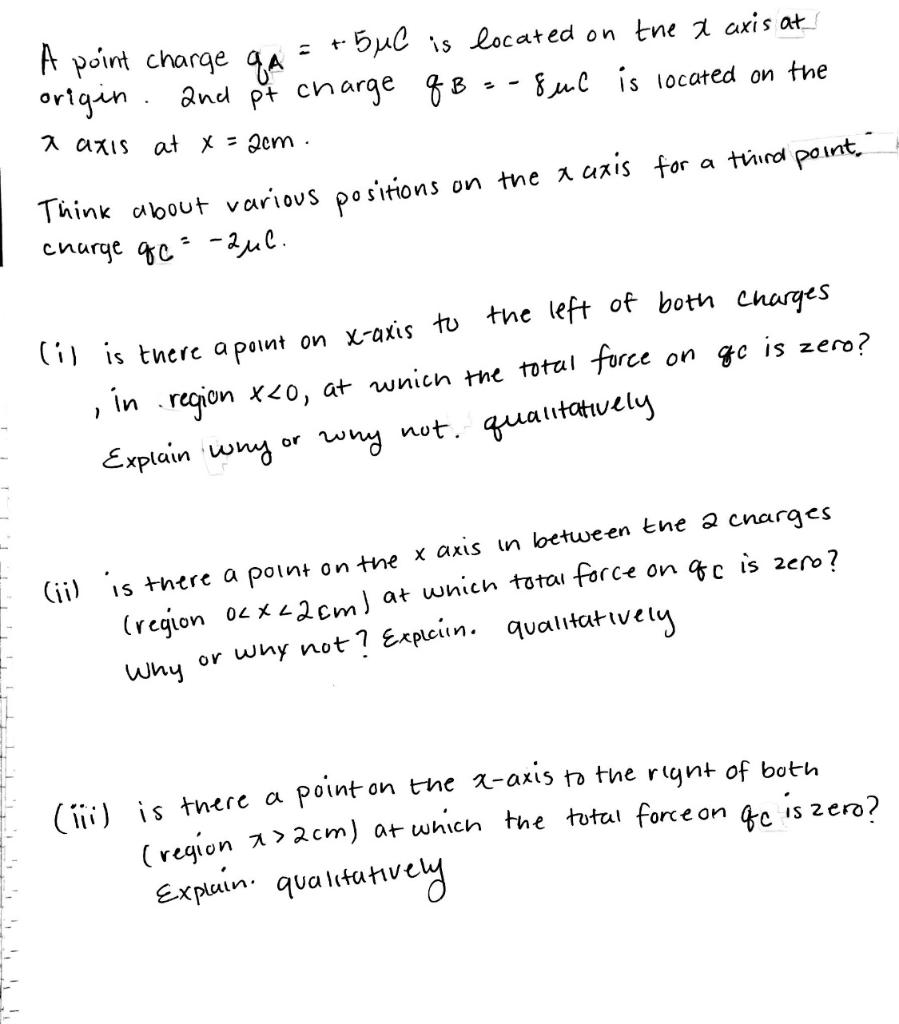 A point charge qA = +5μC is located on the x axis at
origin. 2nd pt charge qB = -8μC is located on the
x axis at x = 2cm.
Think about various positions on the x axis for a third point.
charge qC = -2μC.
(i) is there a point on x-axis to the left of both charges
, in region x<0, at which the total force on qc is zero?
Explain why or why not. qualitatively
(ii) is there a point on the x axis in between the 2 charges
(region 0<x<2cm) at which total force on qc is zero?
Why or why not? Explain. qualitatively
(iii) is there a point on the x-axis to the right of both
(region x>2cm) at which the total force on qc is zero?
Explain. qualitatively